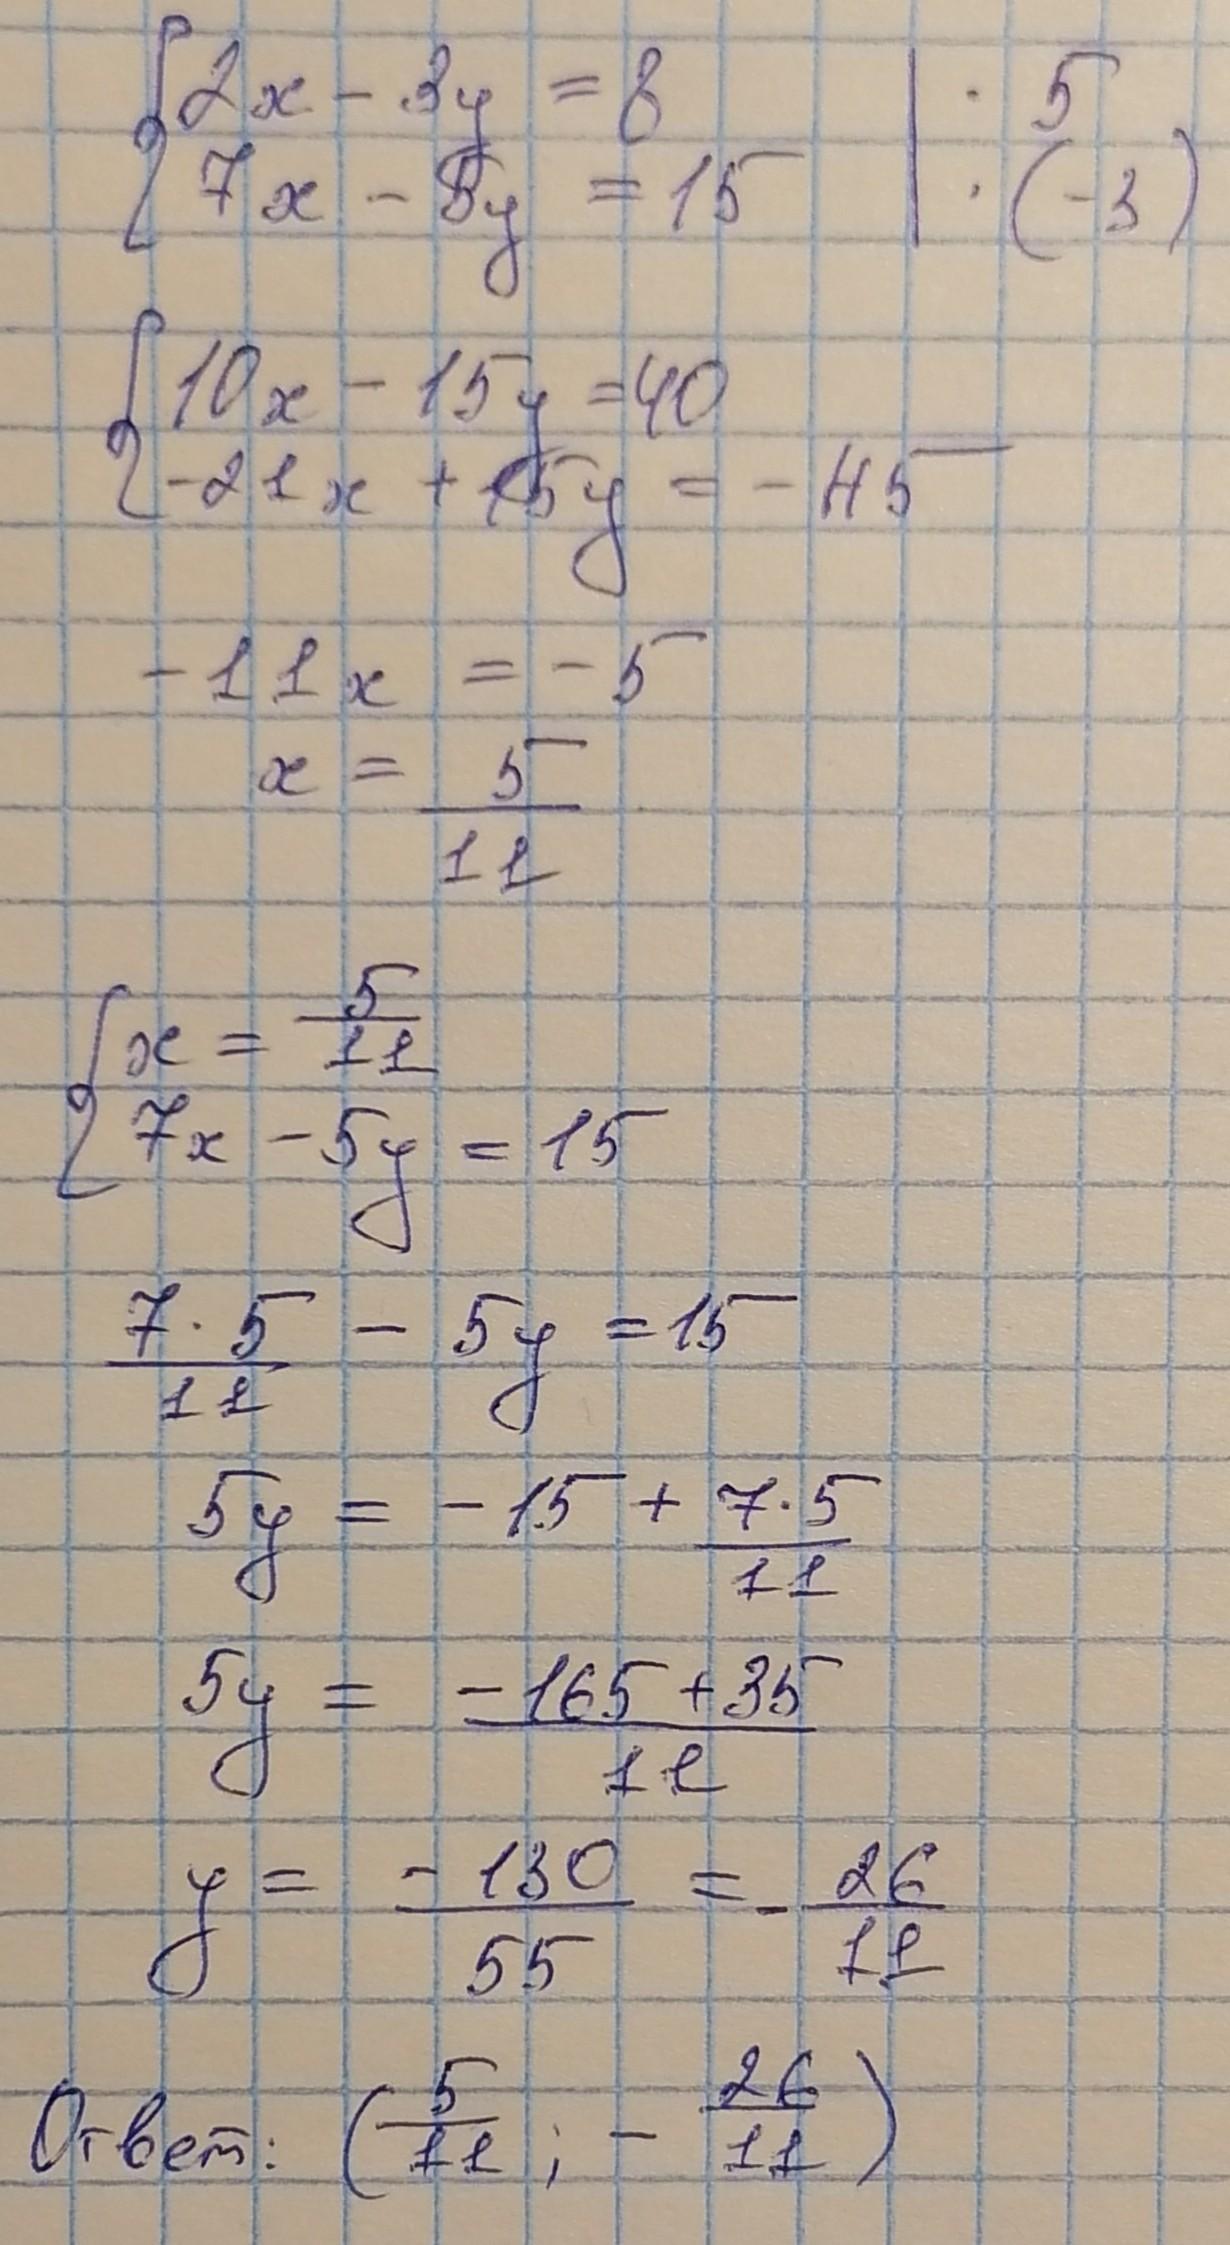 { 2x - 3y = 8 | · 5
{ 7x - 5y = 15 | · (-3)
{ 10x - 15y = 40
{ -21x + 15y = -45
-11x = -5
x = 5/11
{ x = 5/11
{ 7x - 5y = 15
7·5/11 - 5y = 15
5y = -15 + 7·5/11
5y = (-165+35)/11
y = -130/55 = -26/11
Ответ: (5/11 ; -26/11)